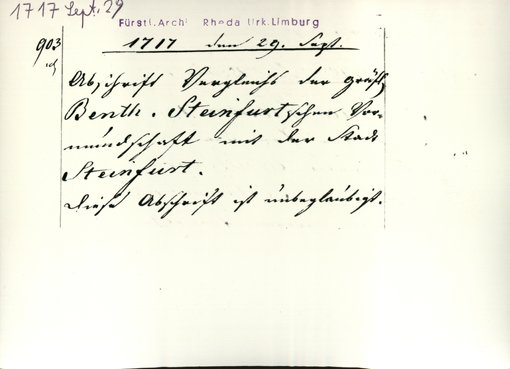 1717 Sept. 29
Fürstl. Arch. Rheda Urk. Limburg
903
1717 den 29. Sept.
Abschrift Vergleichs der gräfl.
Benth. Steinfurt'schen Vor-
mundschaft mit der Stadt
Steinfurt.
Diese Abschrift ist unbeglaubigt.